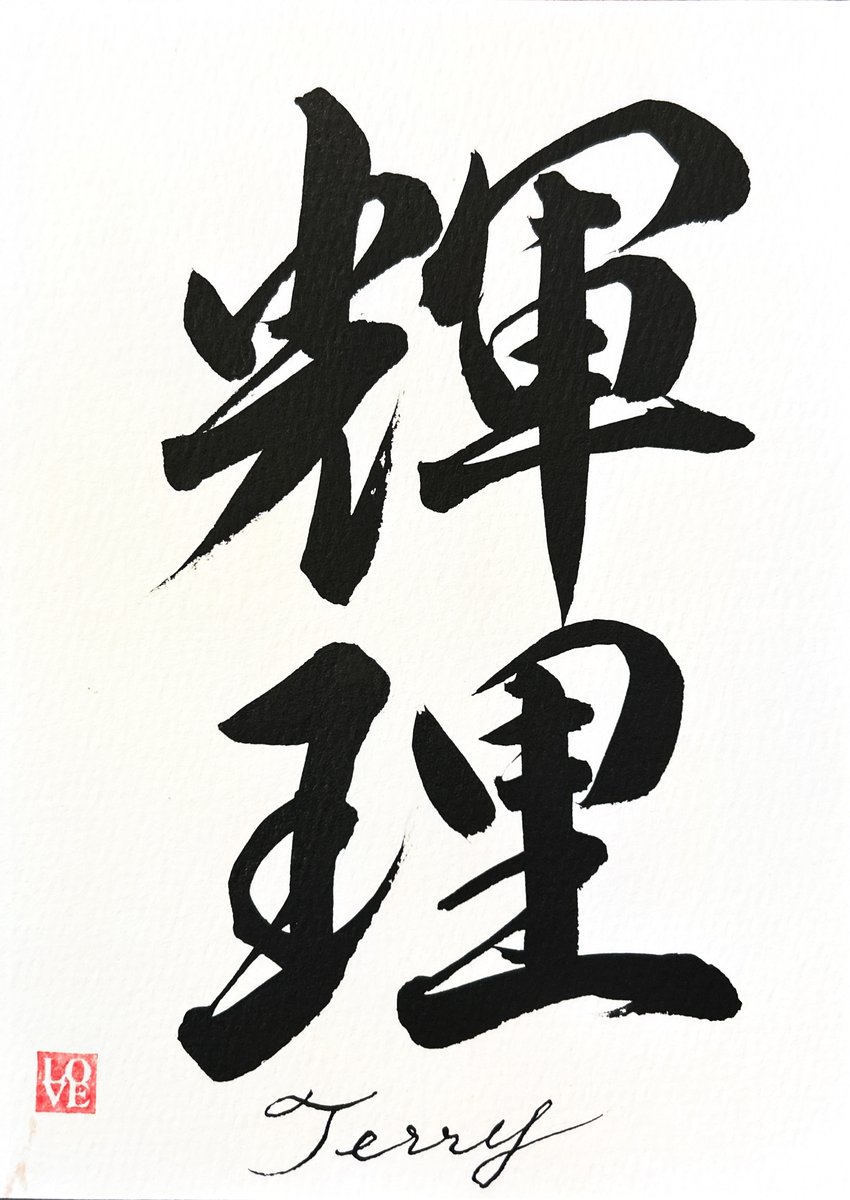 輝
理
LO
VE
Terry